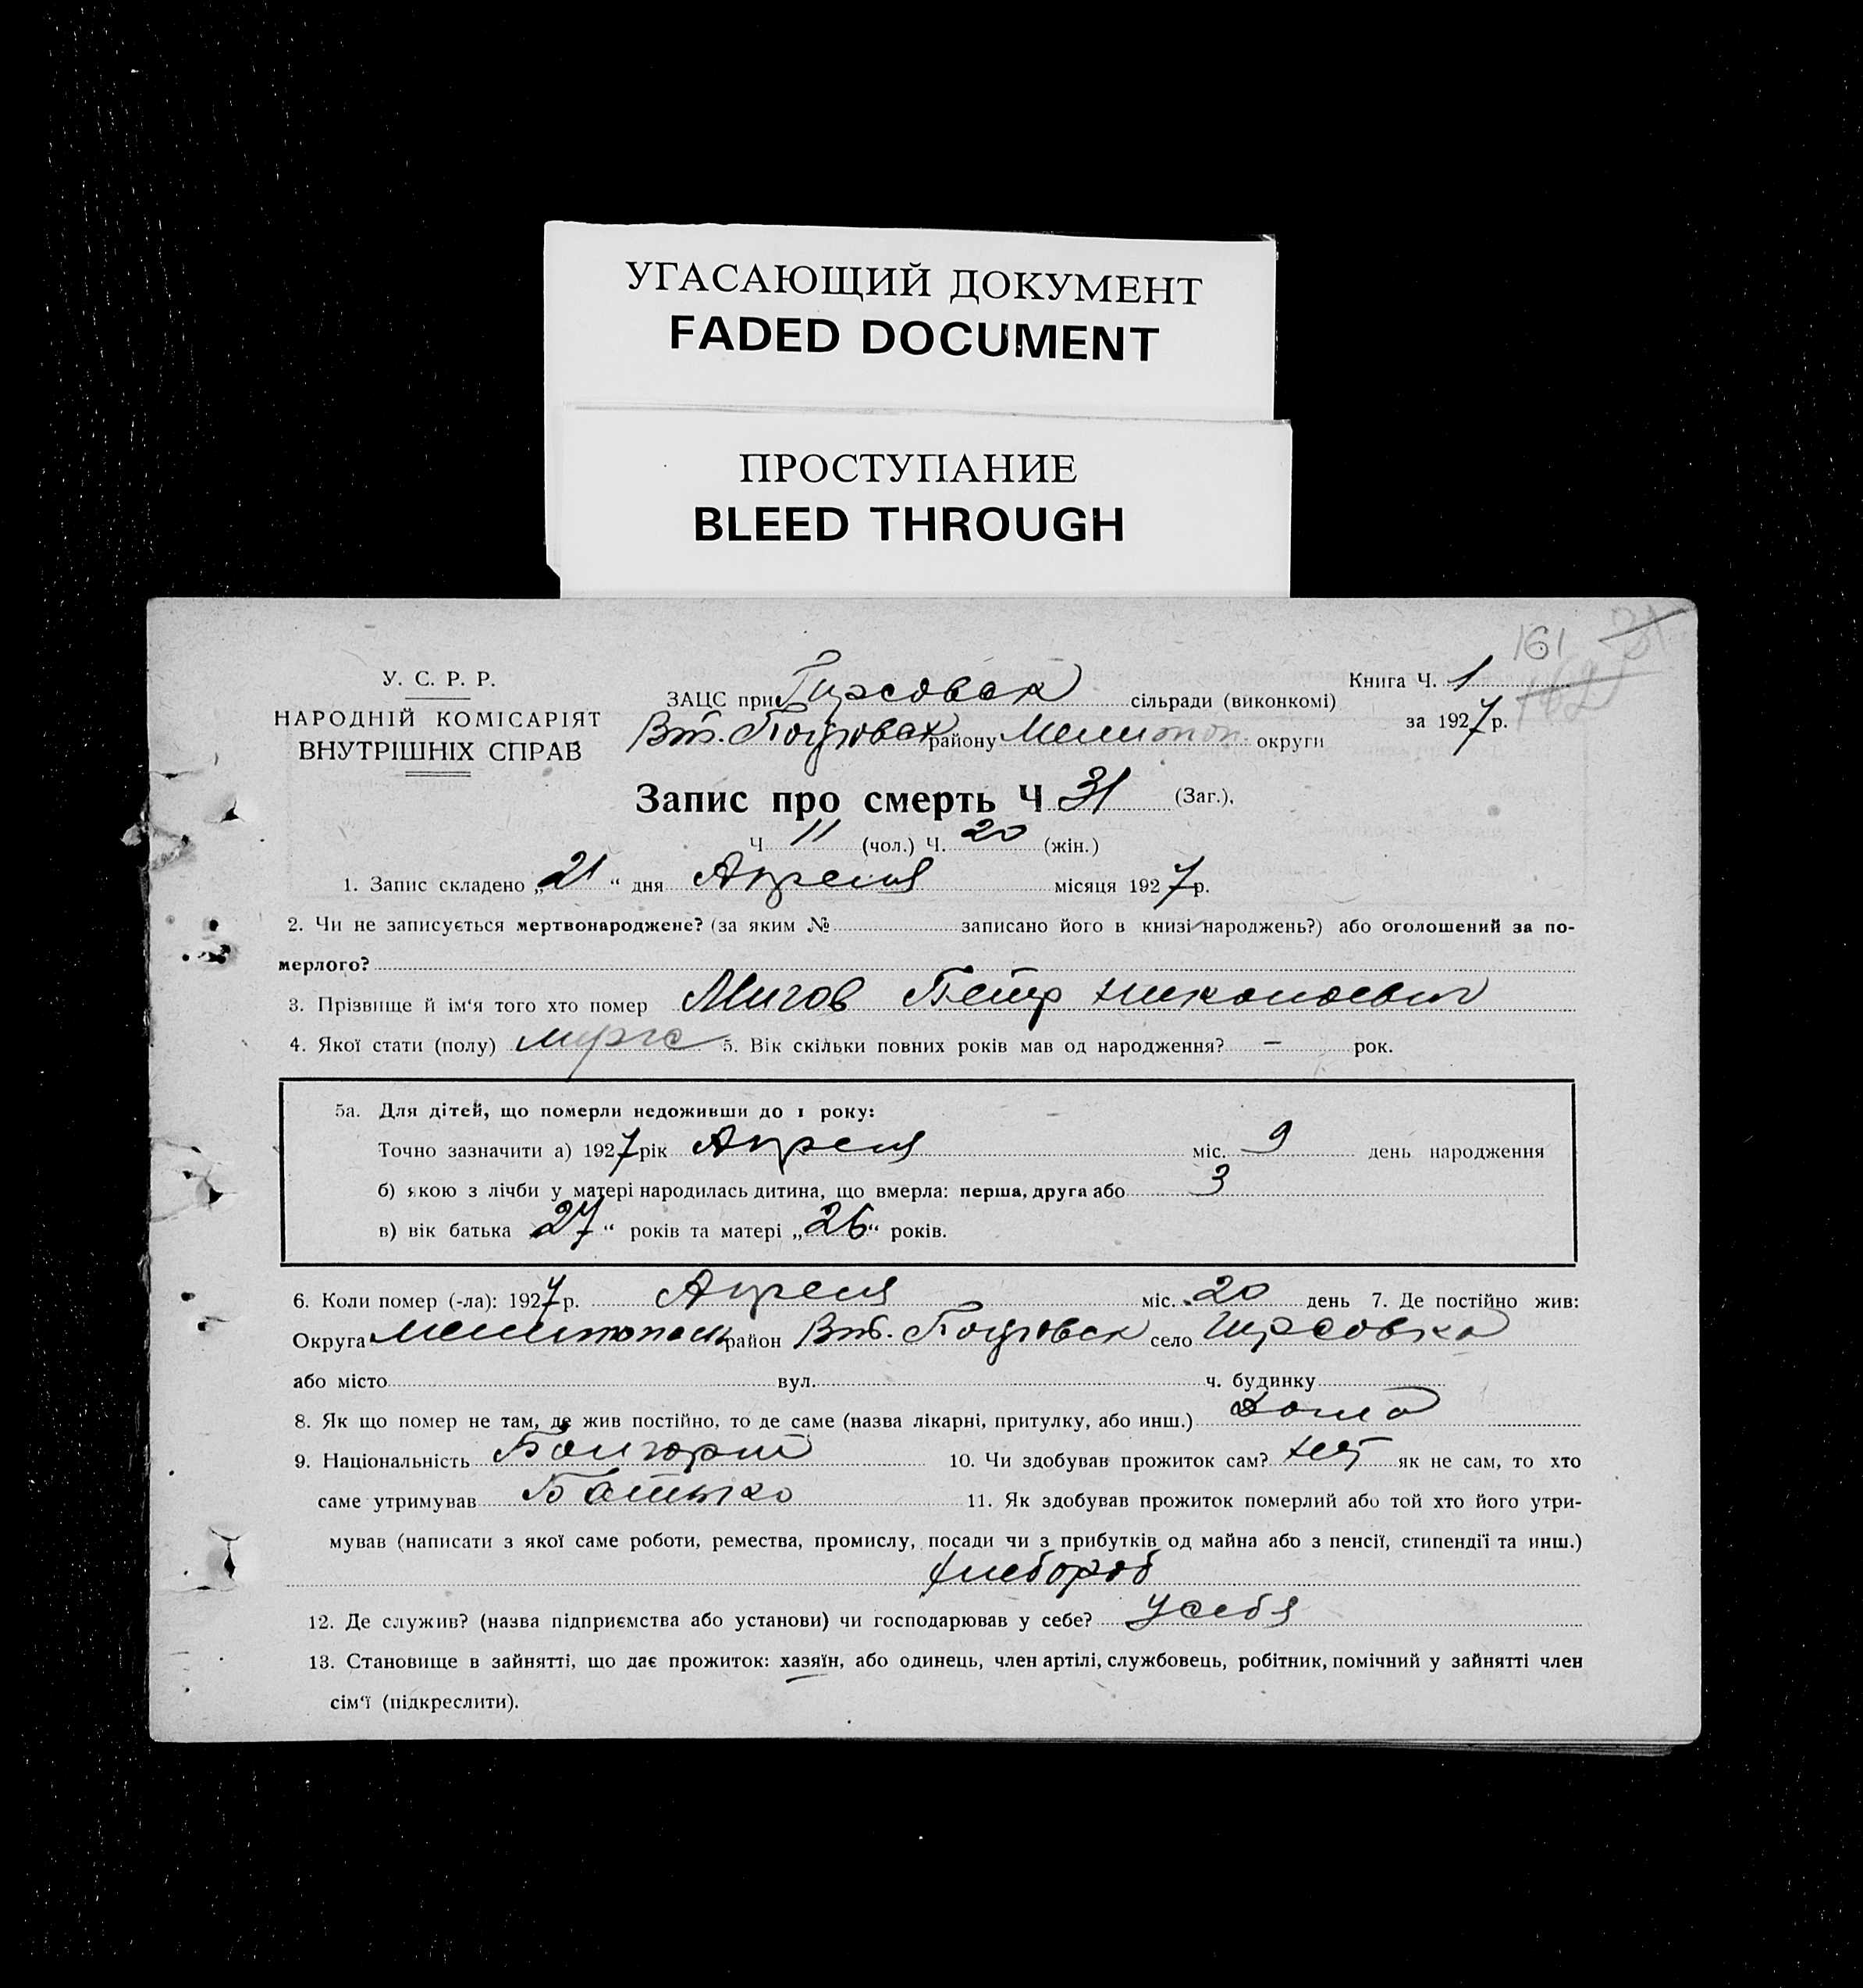 УГАСАЮЩИЙ ДОКУМЕНТ
FADED DOCUMENT
ПРОСТУПАНИЕ
BLEED THROUGH
161 31
162
У. С. Р. Р.
НАРОДНІЙ КОМІСАРІЯТ
ВНУТРІШНІХ СПРАВ
ЗАЦС при Гирсовск сільради (виконкомі)
Книга Ч. 1
районy Мелитоп. округи
за 1927 р.
Запис про смерть Ч 31 (Заг.).
Ч 11 (чол.) Ч. 20 (жін.)
1. Запис складено „21“ дня Апреля місяця 1927 р.
2. Чи не записується мертвонароджене? (за яким № записано його в книзі народжень?) або оголошений за по-
мерлого?
3. Прізвище й ім'я того хто помер Мигов Петр Николаевич
4. Якої стати (полу) мужс 5. Вік скільки повних років мав од народження? — рок.
5а. Для дітей, що померли недоживши до 1 року:
Точно зазначити а) 1927 рік Апреля міс. 9 день народження
б) якою з лічби у матері народилась дитина, що вмерла: перша, друга або 3
в) вік батька „27“ років та матері „26“ років.
6. Коли помер (-ла): 1927 р. Апреля міс. 20 день 7. Де постійно жив:
Округа Мелитопольс район село Гирсовка
або місто вул. ч. будинку
8. Як що помер не там, де жив постійно, то де саме (назва лікарні, притулку, або инш.) дома
9. Національність Болгарин 10. Чи здобував прожиток сам? нет як не сам, то хто
саме утримував Батько 11. Як здобував прожиток померлий або той хто його утри-
мував (написати з якої саме роботи, ремества, промислу, посади чи з прибутків од майна або з пенсії, стипендії та инш.)
хлебороб
12. Де служив? (назва підприємства або установи) чи господарював у себе? у себя
13. Становище в зайнятті, що дає прожиток: хазяїн, або одинець, член артілі, службовець, робітник, помічний у зайнятті член
сім'ї (підкреслити).